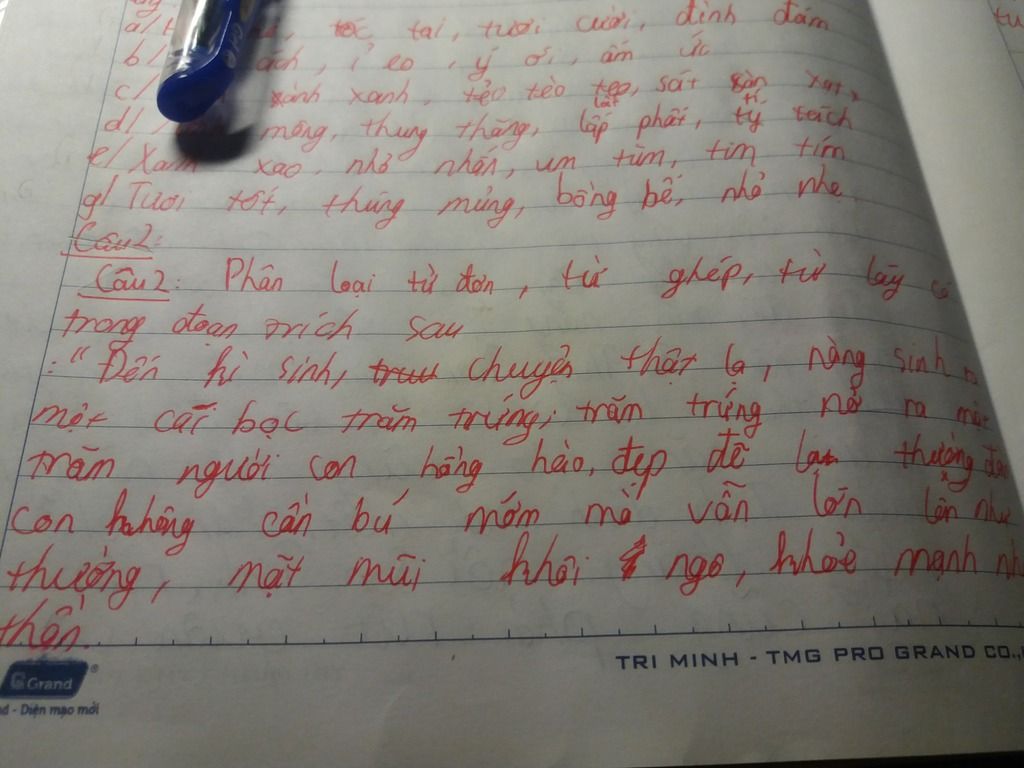 a/ tóc tai, tươi cười, đình đám
b/ ách, ỉ eo, ý ới, ấm ức
c/ xanh xanh, tẻo tèo teo, sát sàn sạt,
d/ mông, thung thăng, lất phất, tí tách
e/ Xanh xao, nhỏ nhắn, um tùm, tim tím
g/ Tươi tốt, thúng mủng, bồng bế, nhỏ nhẹ
Câu 2:
Câu 2: Phân loại từ đơn, từ ghép, từ láy có
trong đoạn trích sau
: "Đến kì sinh, chuyện thật lạ, nàng sinh ra
một cái bọc trăm trứng; trăm trứng nở ra một
trăm người con hồng hào, đẹp đẽ lạ thường đàn
con không cần bú mớm mà vẫn lớn lên như
thường, mặt mũi khôi ngô, khỏe mạnh như
thần.
Grand ®
Diện mạo mới
TRI MINH - TMG PRO GRAND CO.,